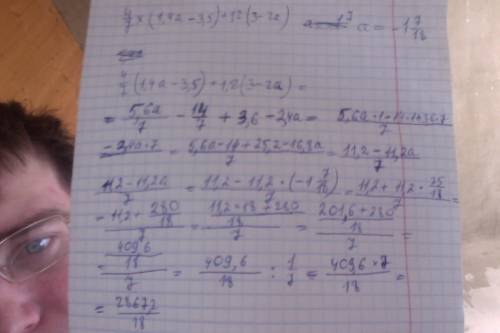 4/7 × (1,4a − 3,5) + 1,2 (3 − 2a) a = −1 7/18
4/7 (1,4a − 3,5) + 1,2 (3 − 2a) =
= 5,6a/7 − 14/7 + 3,6 − 2,4a = 5,6a·1 − 14·1 + 3,6·7
− 2,4a·7 / 7 = 5,6a − 14 + 25,2 − 16,8a / 7 = 11,2 − 11,2a / 7
11,2 − 11,2a / 7 = 11,2 − 11,2 · (−1 7/18) / 7 = 11,2 + 11,2 · 25/18 / 7 =
= 11,2 + 280/18 / 7 = 11,2 · 18 + 280 / 18 / 7 = 201,6 + 280 / 18 / 7 =
= 409,6 / 18 / 7 = 409,6 / 18 : 1/7 = 409,6 · 7 / 18 =
= 2867,2 / 18